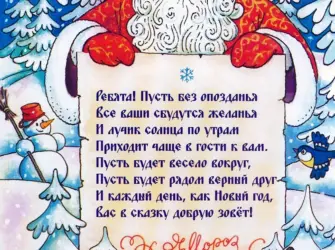 Ребята! Пусть без опозданья
Все ваши сбудутся желанья
И лучик солнца по утрам
Приходит чаще в гости к вам.
Пусть будет весело вокруг,
Пусть будет рядом верный друг
И каждый день, как Новый год,
Вас в сказку добрую зовёт!
Мороз